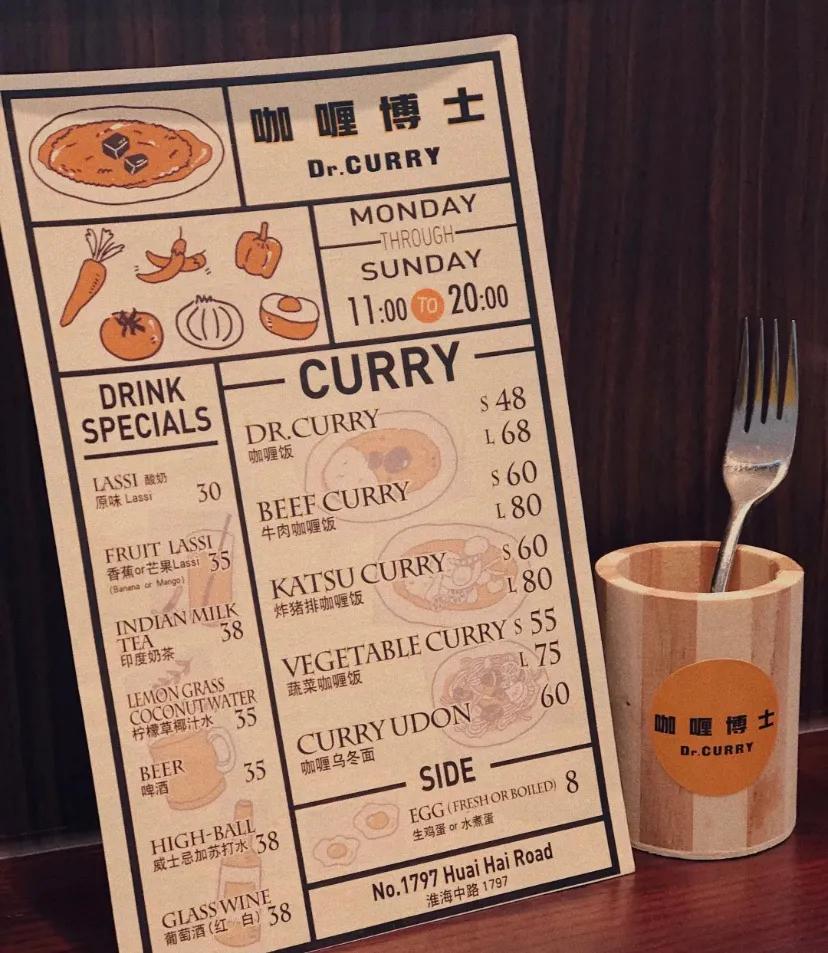 咖喱博士
Dr.CURRY
MONDAY
THROUGH
SUNDAY
11:00 TO 20:00
DRINK
SPECIALS
LASSI 酸奶
原味 Lassi 30
FRUIT LASSI
香蕉or芒果Lassi 35
(Banana or Mango)
INDIAN MILK
TEA 38
印度奶茶
LEMON GRASS
COCONUT WATER
柠檬草椰汁水 35
BEER 35
啤酒
HIGH-BALL
威士忌加苏打水 38
GLASS WINE
葡萄酒(红 白) 38
CURRY
DR.CURRY S 48
咖喱饭 L 68
BEEF CURRY S 60
牛肉咖喱饭 L 80
KATSU CURRY S 60
炸猪排咖喱饭 L 80
VEGETABLE CURRY S 55
蔬菜咖喱饭 L 75
CURRY UDON 60
咖喱乌冬面
SIDE
EGG (FRESH OR BOILED) 8
生鸡蛋 or 水煮蛋
No.1797 Huai Hai Road
淮海中路 1797
咖喱博士
Dr.CURRY